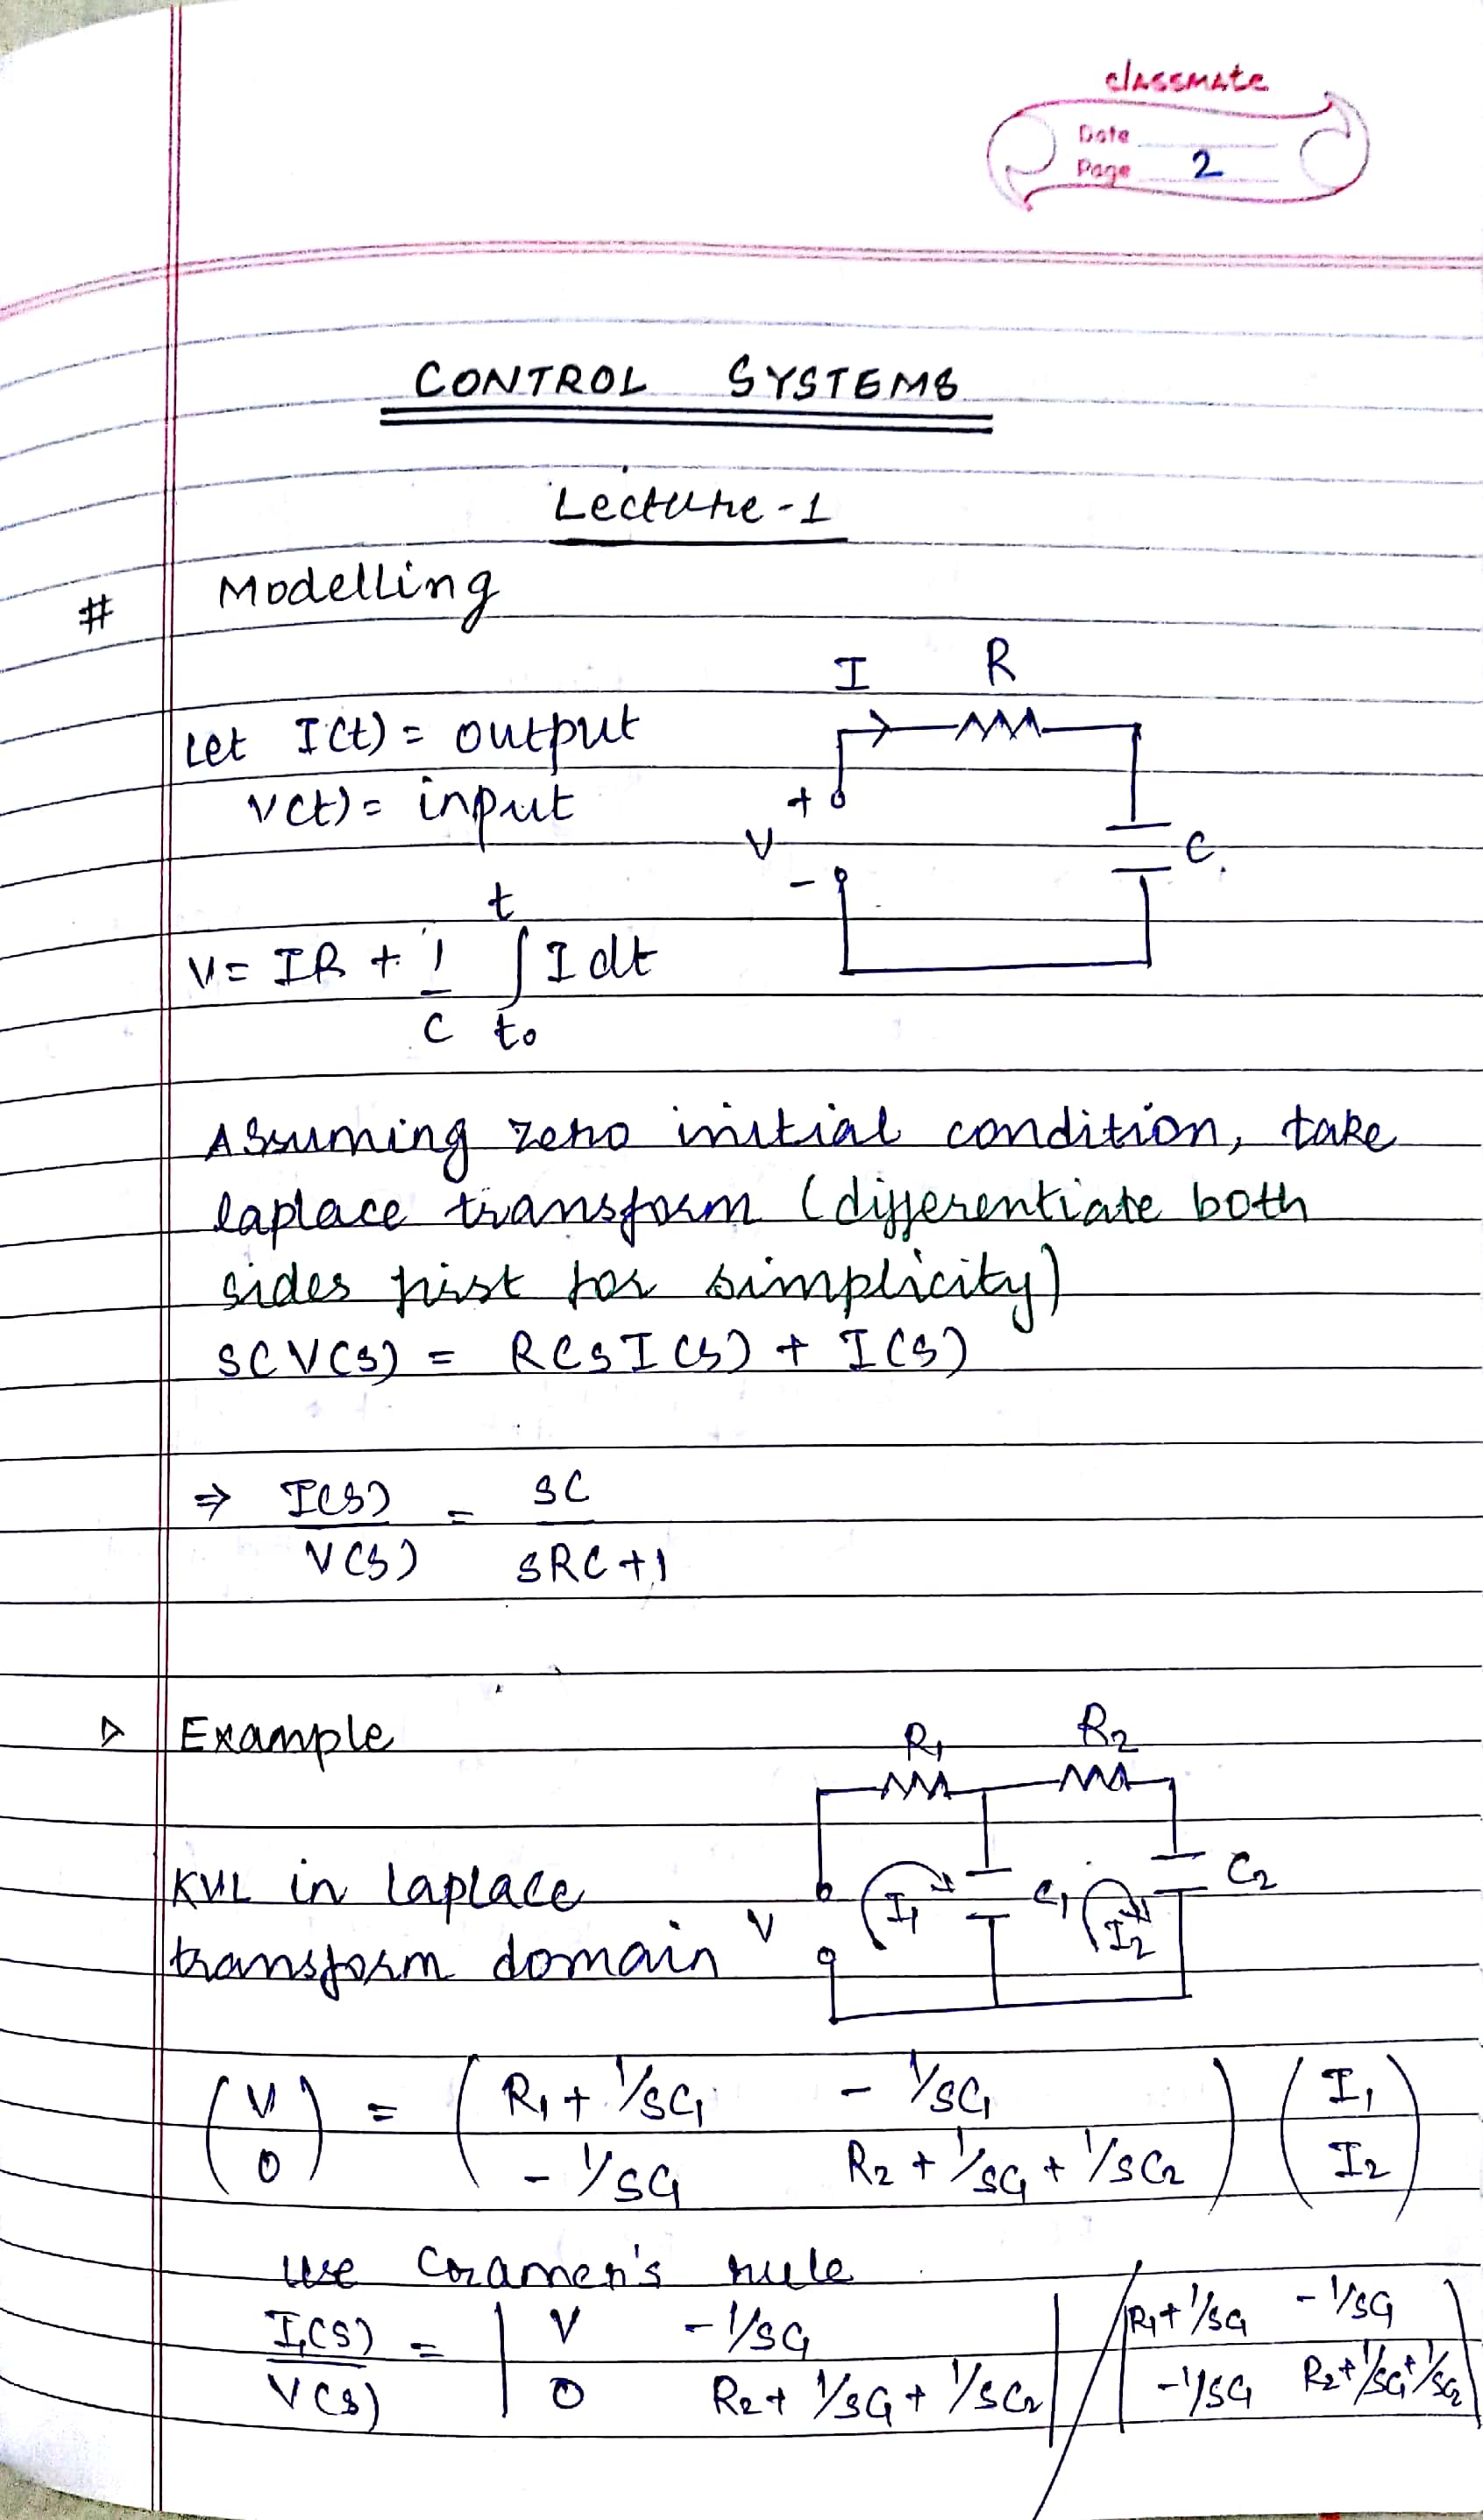 classmate
Date
Page 2
CONTROL SYSTEMS
Lecture-1
# Modelling
I R
Let I(t) = output
V(t) = input
+
V
-
C
V = IR + 1/C ∫ I dt
t
to
Assuming zero initial condition, take
laplace transform (differentiate both
sides first for simplicity)
SCV(S) = RCSI(S) + I(S)
⇒ I(S)/V(S) = SC/SRC+1
▷ Example
R1 R2
KVL in laplace
transform domain
V I1 C1 I2 C2
(V) = (R1 + 1/SC1 - 1/SC1) (I1)
(0) (- 1/SC1 R2 + 1/SC1 + 1/SC2) (I2)
use Cramer's rule
I1(S) = |V - 1/SC1| / |R1 + 1/SC1 - 1/SC1|
V(S) |0 R2 + 1/SC1 + 1/SC2| |- 1/SC1 R2 + 1/SC1 + 1/SC2|